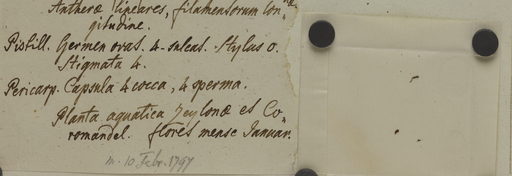 Antheræ lineares, filamentorum lon„
gitudine.
Pistill. Germen ovat. 4-sulcat. Stylus 0.
Stigmata 4.
Pericarp. Capsula 4 cocca, 4 sperma.
Planta aquatica Zeylonæ et Co„
romandel. flores mense Januar.
m. 10 Febr. 1797